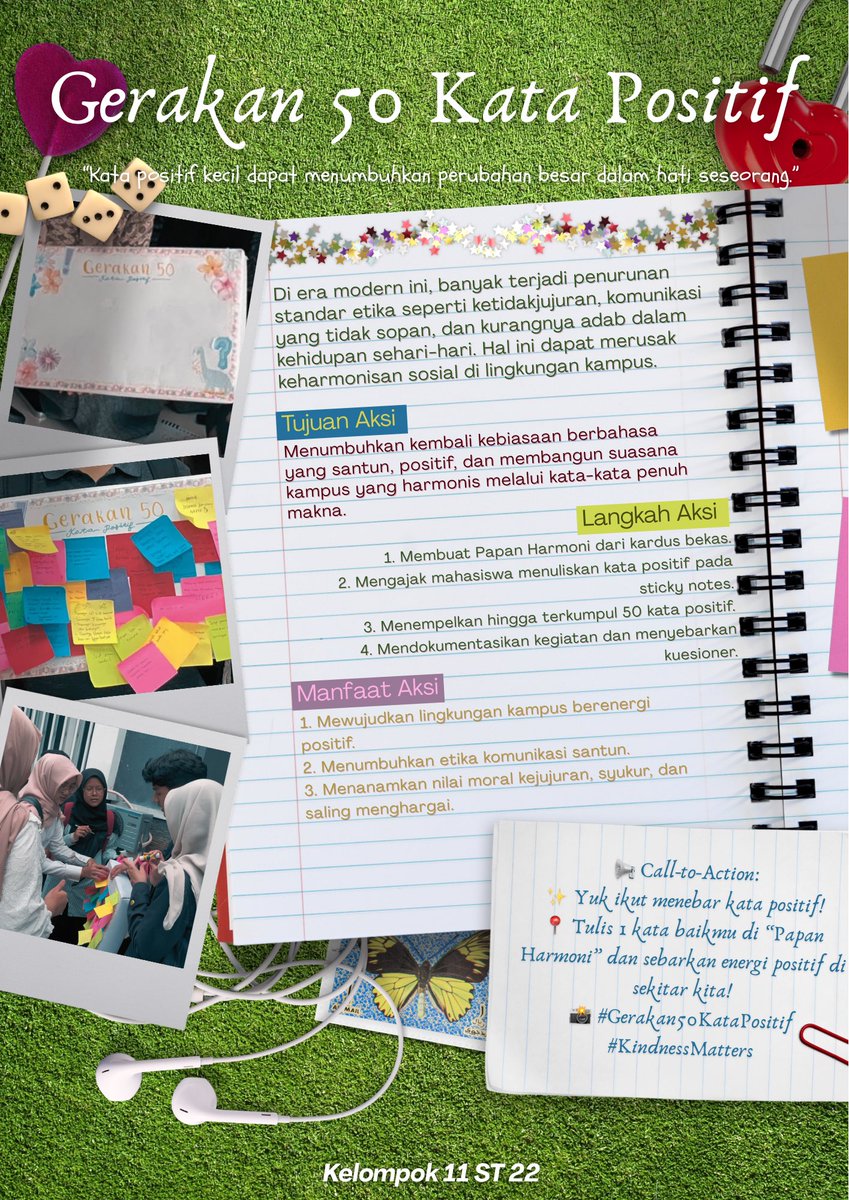 Gerakan 50 Kata Positif
“Kata positif kecil dapat menumbuhkan perubahan besar dalam hati seseorang.”
Gerakan 50
Kata Positif
Di era modern ini, banyak terjadi penurunan
standar etika seperti ketidakjujuran, komunikasi
yang tidak sopan, dan kurangnya adab dalam
kehidupan sehari-hari. Hal ini dapat merusak
keharmonisan sosial di lingkungan kampus.
Tujuan Aksi
Menumbuhkan kembali kebiasaan berbahasa
yang santun, positif, dan membangun suasana
kampus yang harmonis melalui kata-kata penuh
makna.
Gerakan 50
Kata Positif
Langkah Aksi
1. Membuat Papan Harmoni dari kardus bekas.
2. Mengajak mahasiswa menuliskan kata positif pada
sticky notes.
3. Menempelkan hingga terkumpul 50 kata positif.
4. Mendokumentasikan kegiatan dan menyebarkan
kuesioner.
Manfaat Aksi
1. Mewujudkan lingkungan kampus berenergi
positif.
2. Menumbuhkan etika komunikasi santun.
3. Menanamkan nilai moral kejujuran, syukur, dan
saling menghargai.
📢 Call-to-Action:
✨ Yuk ikut menebar kata positif!
📍 Tulis 1 kata baikmu di “Papan
Harmoni” dan sebarkan energi positif di
sekitar kita!
📸 #Gerakan50KataPositif
#KindnessMatters
Kelompok 11 ST 22